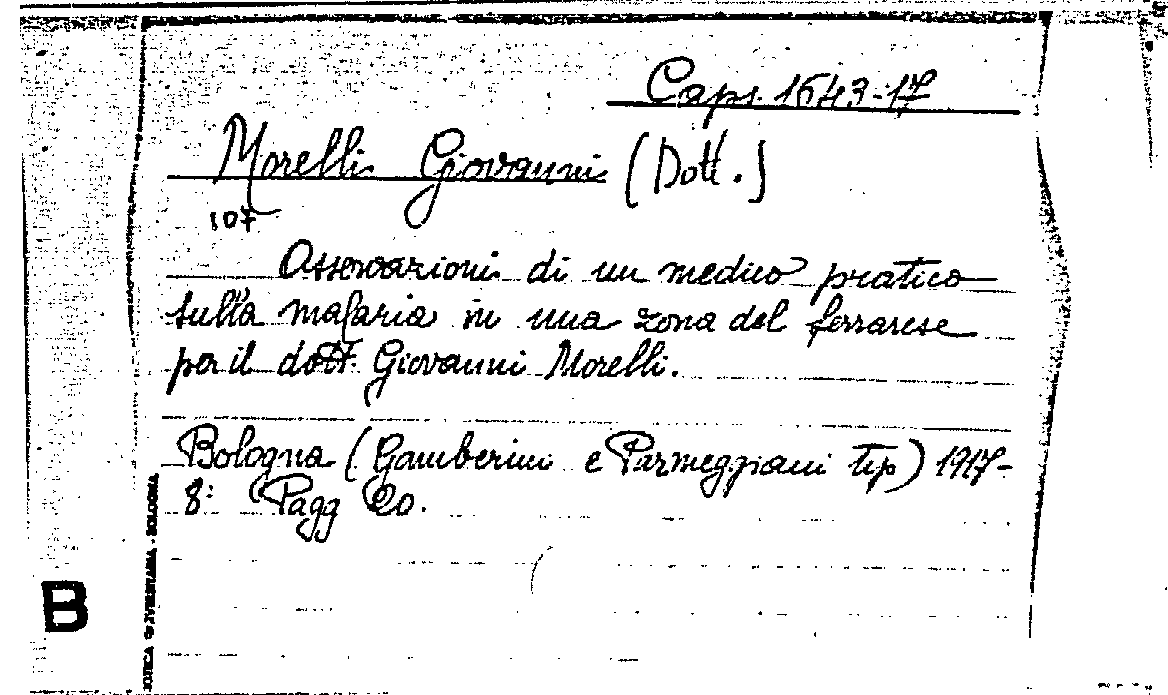 Caps. 1643-17
Morelli Giovanni (Dott.)
107
Osservazioni di un medico pratico
sulla malaria in una zona del ferrarese
per il dott. Giovanni Morelli.
Bologna (Gamberini e Parmeggiani tip) 1917-
8: Pagg 20.
B
BOLOGNA